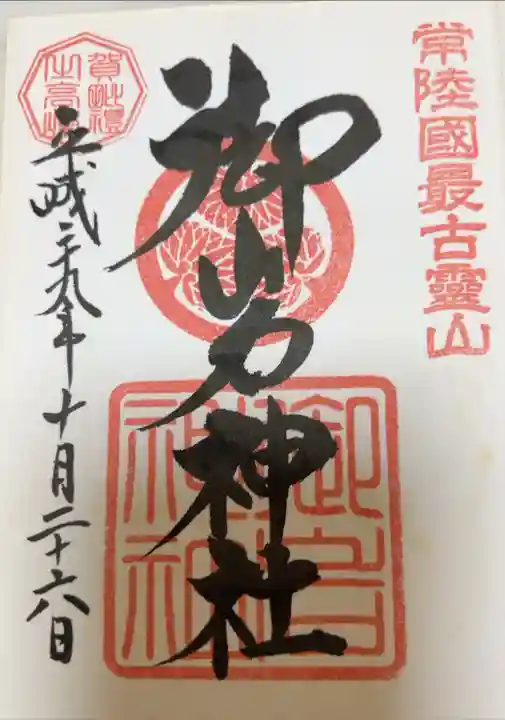 常陸國最古靈山
御岩神社
御岩神社
賀毗禮
之高峰
平成二十九年十月二十六日